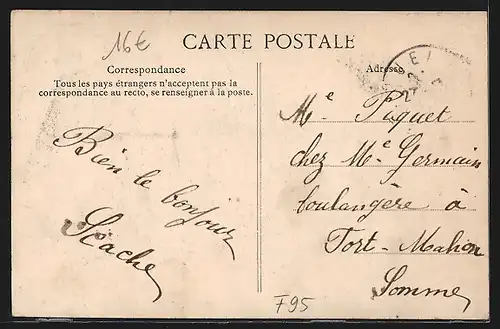 16€
CARTE POSTALE
Correspondance
Tous les pays étrangers n'acceptent pas la
correspondance au recto, se renseigner à la poste.
Bien le bonjour
Adresse
Me Piquet
chez Me Germain
boulangère à
Fort-Mahon
Somme
F95